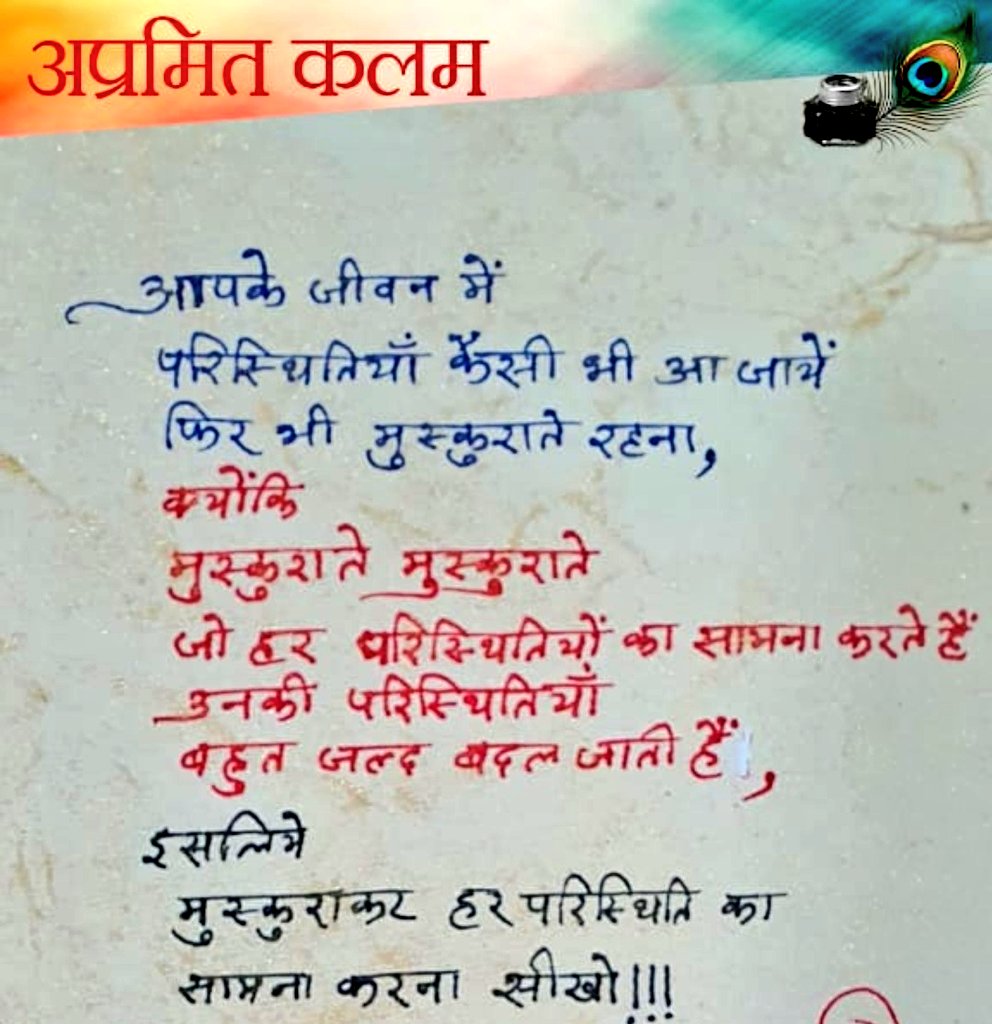 अप्रमित कलम
आपके जीवन में
परिस्थितियाँ कैसी भी आ जायें
फिर भी मुस्कुराते रहना,
क्योंकि
मुस्कुराते मुस्कुराते
जो हर परिस्थितियों का सामना करते हैं
उनकी परिस्थितियाँ
बहुत जल्द बदल जाती हैं,
इसलिये
मुस्कुराकर हर परिस्थिति का
सामना करना सीखो!!!